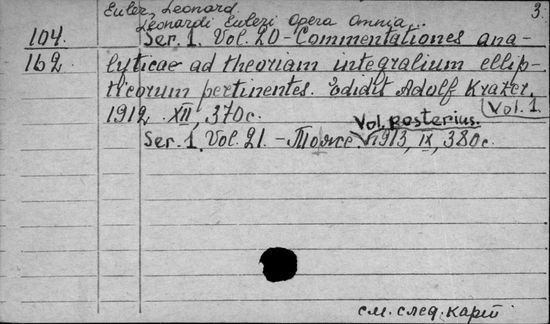 Euler, Leonard. 3.
Leonardi Euleri Opera Omnia...
104. Ser. 1. Vol. 20 - Commentationes ana-
162 lyticae ad theoriam integralium ellip-
ticorum pertinentes. Edidit Adolf Krazer.
1912. XII, 370с. Vol. 1.
Vol. posterius.
Ser. 1. Vol. 21. - Тоже 1913, IX, 380с.
см. след. карт